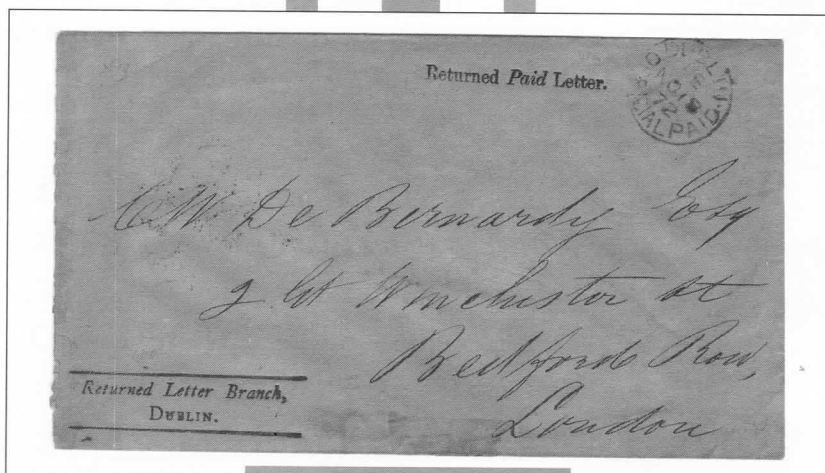 Returned Paid Letter.
OFFICIAL PAID
AU
72
De Bernardy Esq
2 Gt Winchester St
Bedford Row,
London
Returned Letter Branch,
DUBLIN.